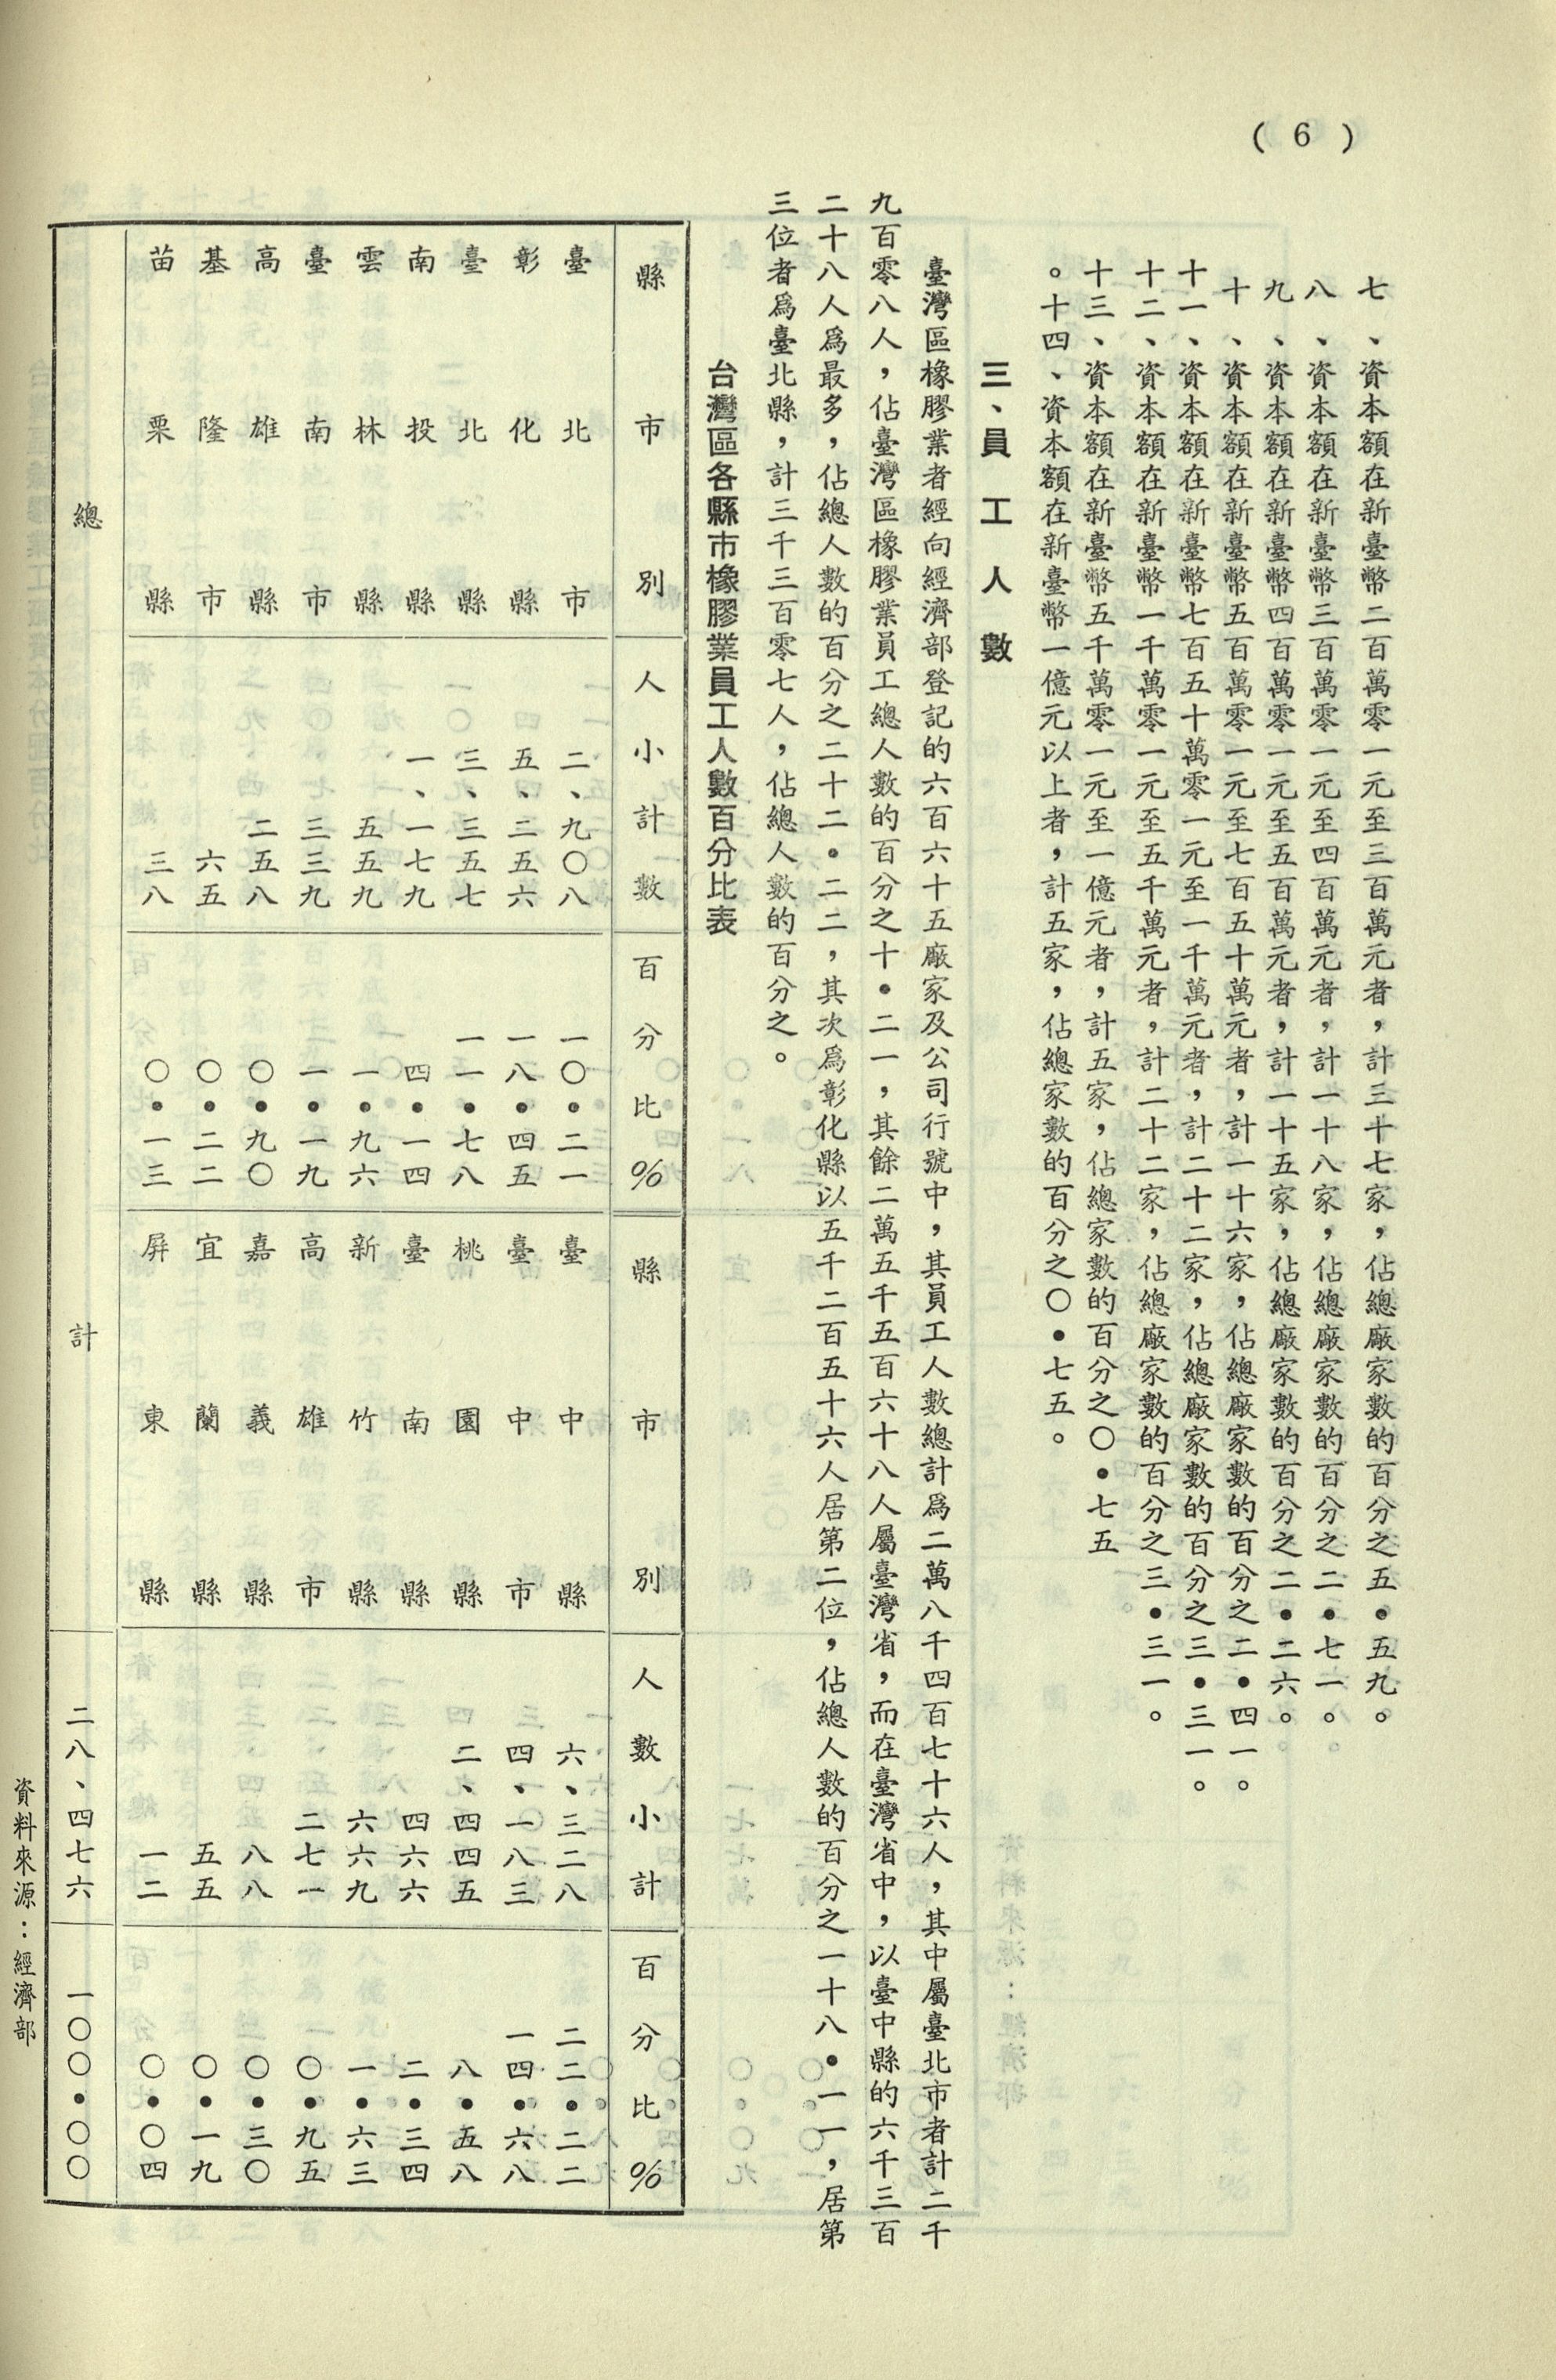 ( 6 )
七、資本額在新臺幣二百萬零一元至三百萬元者，計三十七家，佔總廠家數的百分之五•五九。
八、資本額在新臺幣三百萬零一元至四百萬元者，計一十八家，佔總廠家數的百分之二•七一。
九、資本額在新臺幣四百萬零一元至五百萬元者，計一十五家，佔總廠家數的百分之二•二六。
十、資本額在新臺幣五百萬零一元至七百五十萬元者，計一十六家，佔總廠家數的百分之二•四一。
十一、資本額在新臺幣七百五十萬零一元至一千萬元者，計二十二家，佔總廠家數的百分之三•三一。
十二、資本額在新臺幣一千萬零一元至五千萬元者，計二十二家，佔總廠家數的百分之三•三一。
十三、資本額在新臺幣五千萬零一元至一億元者，計五家，佔總家數的百分之〇•七五
。十四、資本額在新臺幣一億元以上者，計五家，佔總家數的百分之〇•七五。
三、員工人數
臺灣區橡膠業者經向經濟部登記的六百六十五廠家及公司行號中，其員工人數總計爲二萬八千四百七十六人，其中屬臺北市者計二千
九百零八人，佔臺灣區橡膠業員工總人數的百分之十•二一，其餘二萬五千五百六十八人屬臺灣省，而在臺灣省中，以臺中縣的六千三百
二十八人爲最多，佔總人數的百分之二十二•二二，其次爲彰化縣以五千二百五十六人居第二位，佔總人數的百分之一十八•一一，居第
三位者爲臺北縣，計三千三百零七人，佔總人數的百分之。
台灣區各縣市橡膠業員工人數百分比表
縣市別 人小計數 百分比% 縣市別 人數小計 百分比%
臺北市 二、九〇八 一〇•二一 臺中縣 六、三二八 二二•二二
彰化縣 五、二五六 一八•四五 臺中市 四、一八三 一四•六八
臺北縣 三、三五七 一一•七八 桃園縣 二、四四五 八•五八
南投縣 一、一七九 四•一四 臺南縣 四六六 二•三四
雲林縣 五五九 一•九六 新竹縣 六六九 一•六三
臺南市 三三九 一•一九 高雄市 二七一 〇•九五
高雄縣 二五八 〇•九〇 嘉義縣 八八 〇•三〇
基隆市 六五 〇•二二 宜蘭縣 五五 〇•一九
苗栗縣 三八 〇•一三 屏東縣 一二 〇•〇四
總計 二八、四七六 一〇〇•〇〇
資料來源：經濟部